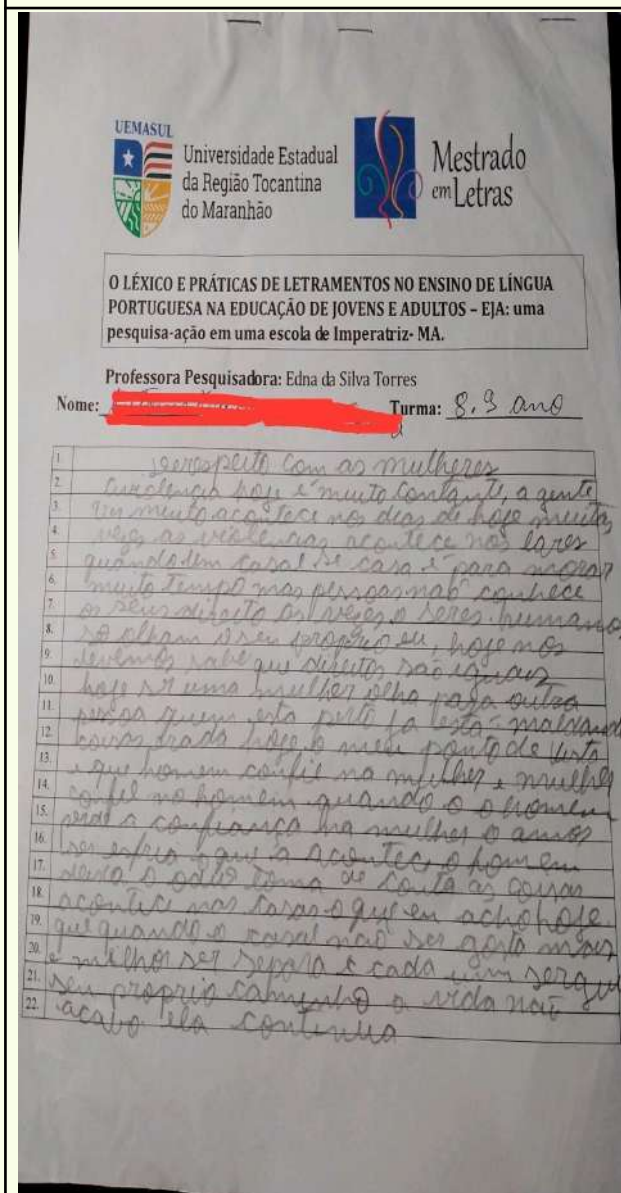 UEMASUL
Universidade Estadual
da Região Tocantina
do Maranhão
Mestrado
em Letras
O LÉXICO E PRÁTICAS DE LETRAMENTOS NO ENSINO DE LÍNGUA
PORTUGUESA NA EDUCAÇÃO DE JOVENS E ADULTOS – EJA: uma
pesquisa-ação em uma escola de Imperatriz- MA.
Professora Pesquisadora: Edna da Silva Torres
Nome: Turma: 8.9 ano
1. com as mulheres
2. hoje é muito Constante, a gente
3. muito acontece nos dias de hoje muitas
4. vezes as violencias acontece nos lares
5. quando casal se casa é para morar
6. muito tempo mas pessoas não conhece
7. os seus direito as vezes o seres humanos
8. so olham o seu proprio eu, hoje nos
9. devemos sabe que direitos são iguais
10. hoje uma mulher olha para outra
11. pessoa quem esta perto ja esta maldando
12. coisas hoje o meu ponto de vista
13. e que homem confie na mulher e mulher
14. no homem quando o o homem
15. perde a confiança na mulher o amor
16. ser esfria o que acontece o homem
17. deixa o odio toma de conta as coisas
18. acontece nas casas o que eu acho hoje
19. que quando o casal não ser gosta mais
20. e melhor ser separa e cada um
21. seu proprio caminho a vida não
22. ela continua